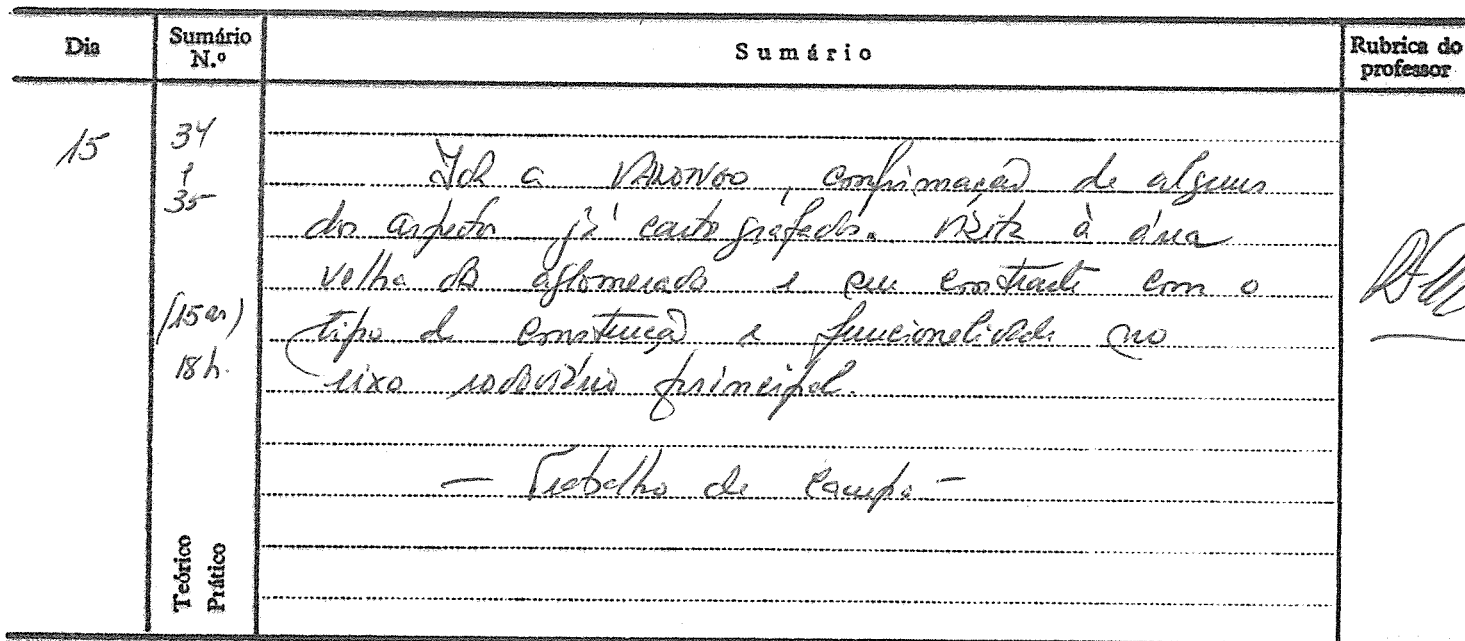 Dia Sumário N.º Sumário Rubrica do professor
15 34 e 35
Ida a VALONGO, confirmação de alguns
dos aspectos já cartografados. Visita à área
velha do aglomerado e seu contraste com o
(15 às) 18h.
tipo de construção e funcionalidade no
eixo rodoviário principal.
— Trabalho de Campo —
Teórico
Prático